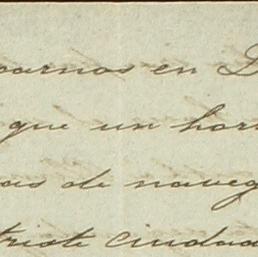 barnos en
que un hor
as de naveg
triste ciudad